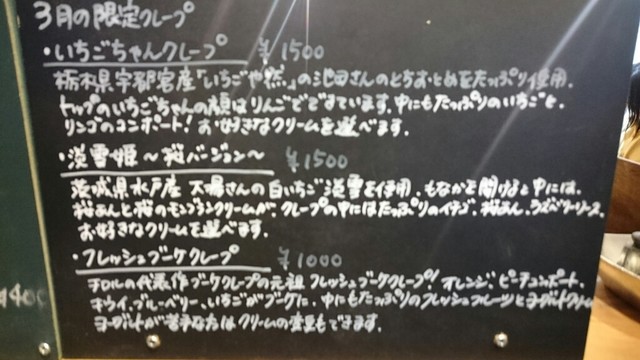 3月の限定クレープ
・いちごちゃんクレープ ¥1500
栃木県宇都宮産「いちごや悠」の池田さんのとちおとめをたっぷり使用。
トップのいちごちゃんの顔はりんごでできています。中にもたっぷりのいちごと、
リンゴのコンポート！お好きなクリームを選べます。
・淡雪姫〜桜バージョン〜 ¥1500
茨城県水戸産 大場さんの白いちご淡雪を使用、もなかを開けると中には、
桜あんと桜のモンブランクリームが、クレープの中にはたっぷりのイチゴ、桜あん、ラズベリーソース、
お好きなクリームを選べます。
・フレッシュブーケクレープ ¥1000
チロルの代表作ブーケクレープの元祖 フレッシュブーケクレープ！オレンジ、ピーチコンポート、
キウイ、ブルーベリー、いちごがブーケに、中にもたっぷりのフレッシュフルーツとヨーグルトクリーム
ヨーグルトが苦手な方はクリームの変更もできます。